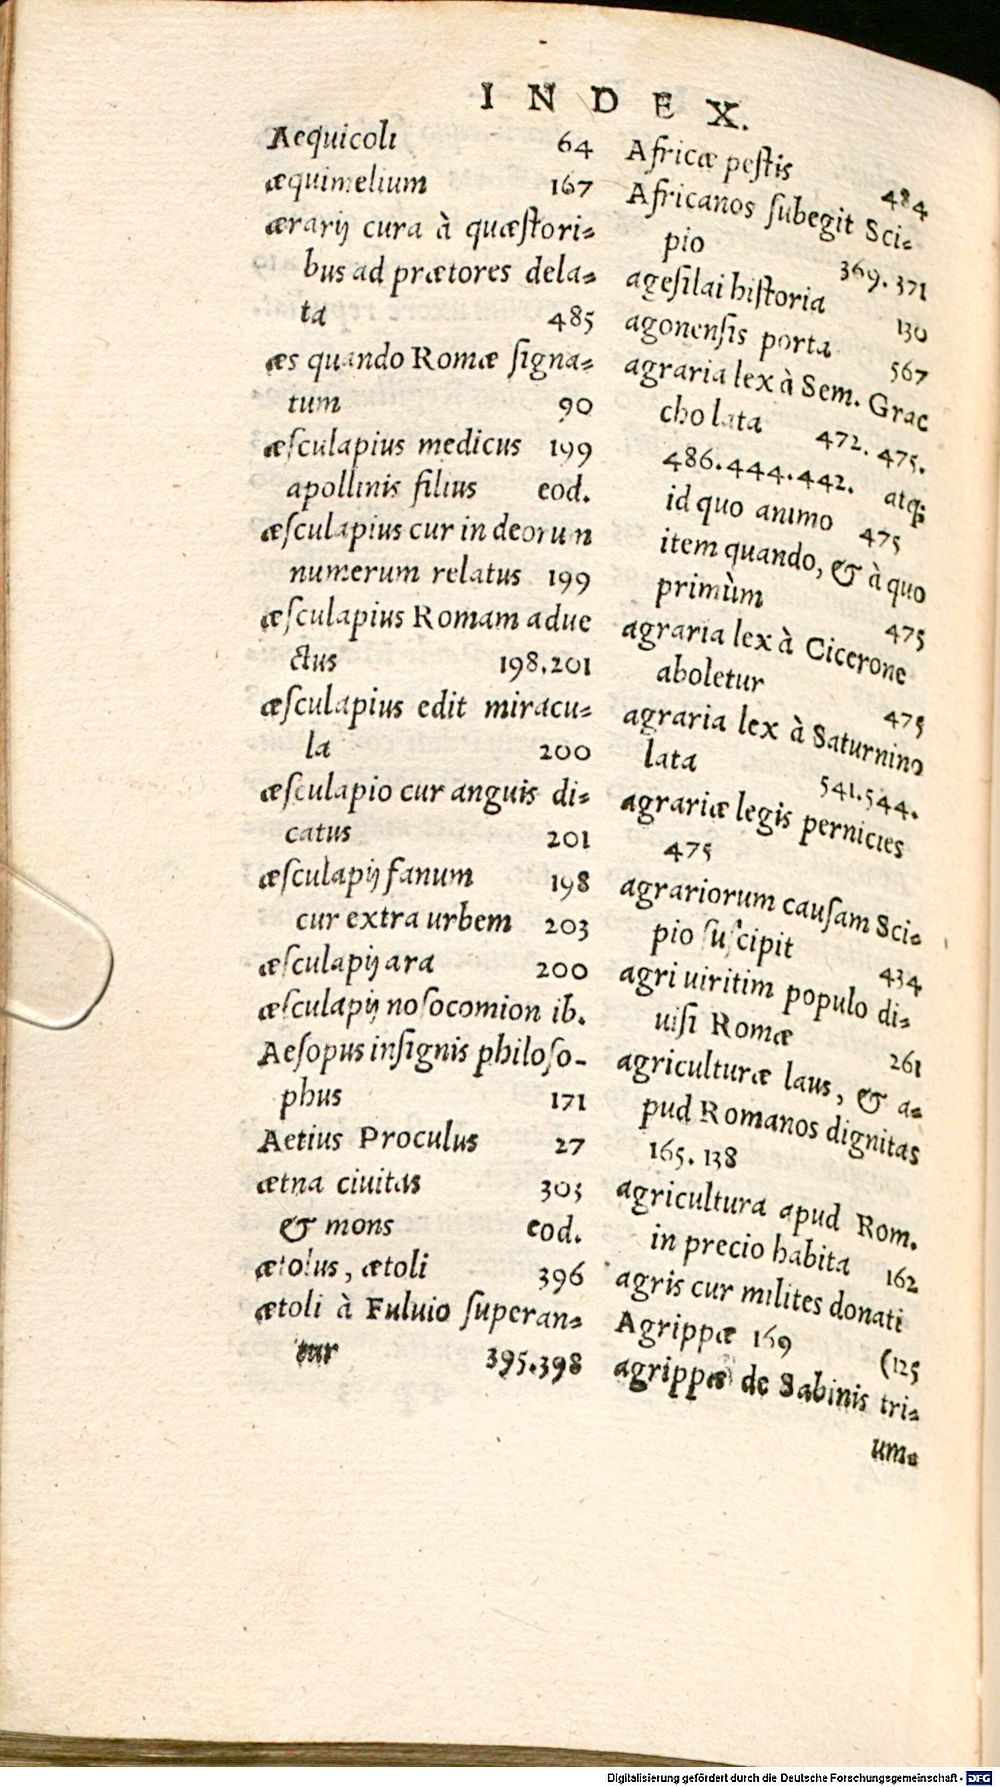 INDEX.
Aequicoli 64
æquimelium 167
ærarij cura à quæſtori⸗
bus ad prætores dela⸗
ta 485
æs quando Romæ ſigna⸗
tum 90
æſculapius medicus 199
apollinis filius eod.
æſculapius cur in deorum
numerum relatus 199
æſculapius Romam adue
ctus 198.201
æſculapius edit miracu⸗
la 200
æſculapio cur anguis di⸗
catus 201
æſculapij fanum 198
cur extra urbem 203
æſculapij ara 200
æſculapij noſocomion ib.
Aeſopus inſignis philoſo-
phus 171
Aetius Proculus 27
ætna ciuitas 303
& mons eod.
ætolus, ætoli 396
ætoli à Fuluio ſuperan⸗
tur 395.398
Africæ peſtis 484
Africanos ſubegit Sci⸗
pio 369.371
ageſilai hiſtoria 130
agonenſis porta 567
agraria lex à Sem. Grac
cho lata 472. 475.
486.444.442. atq;
id quo animo 475
item quando, & à quo
primùm 475
agraria lex à Cicerone
aboletur 475
agraria lex à Saturnino
lata 541.544.
agrariæ legis pernicies
475
agrariorum cauſam Sci⸗
pio ſuſcipit 434
agri uiritim populo di⸗
uiſi Romæ 261
agriculturæ laus, & a⸗
pud Romanos dignitas
165. 138
agricultura apud Rom.
in precio habita 162
agris cur milites donati
Agrippæ 169 (125
agrippæ de Sabinis tri⸗
um⸗
Digitalisierung gefördert durch die Deutsche Forschungsgemeinschaft - DFG